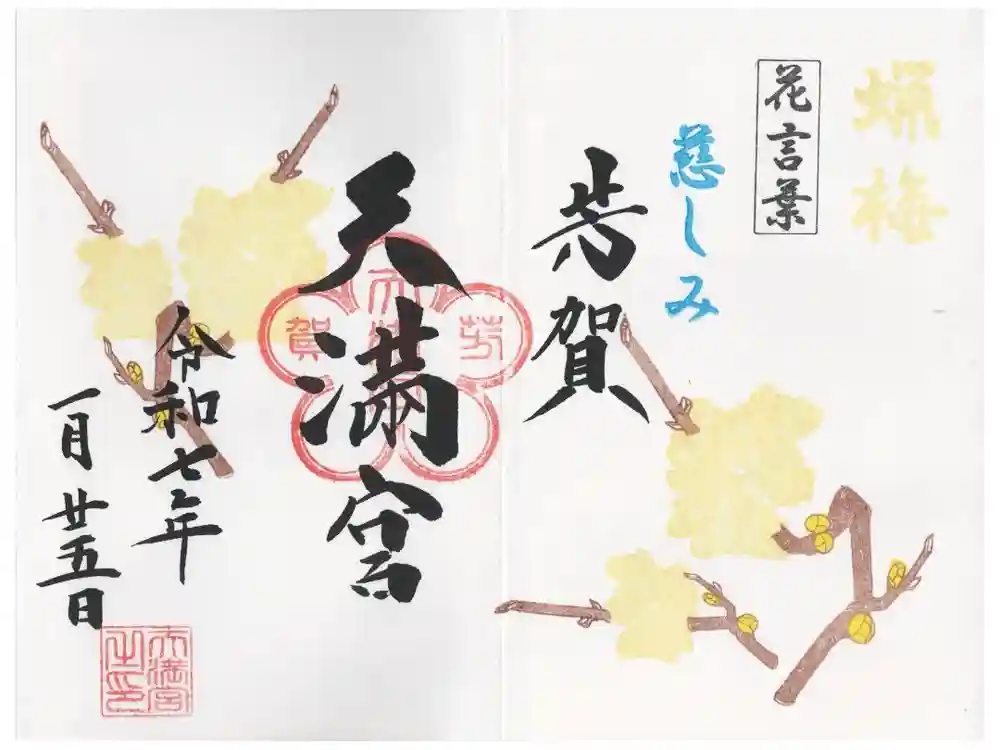 蝋梅
花言葉
慈しみ
芳賀
天満宮
芳賀天満宮
令和七年
一月廿五日
天満宮
之印